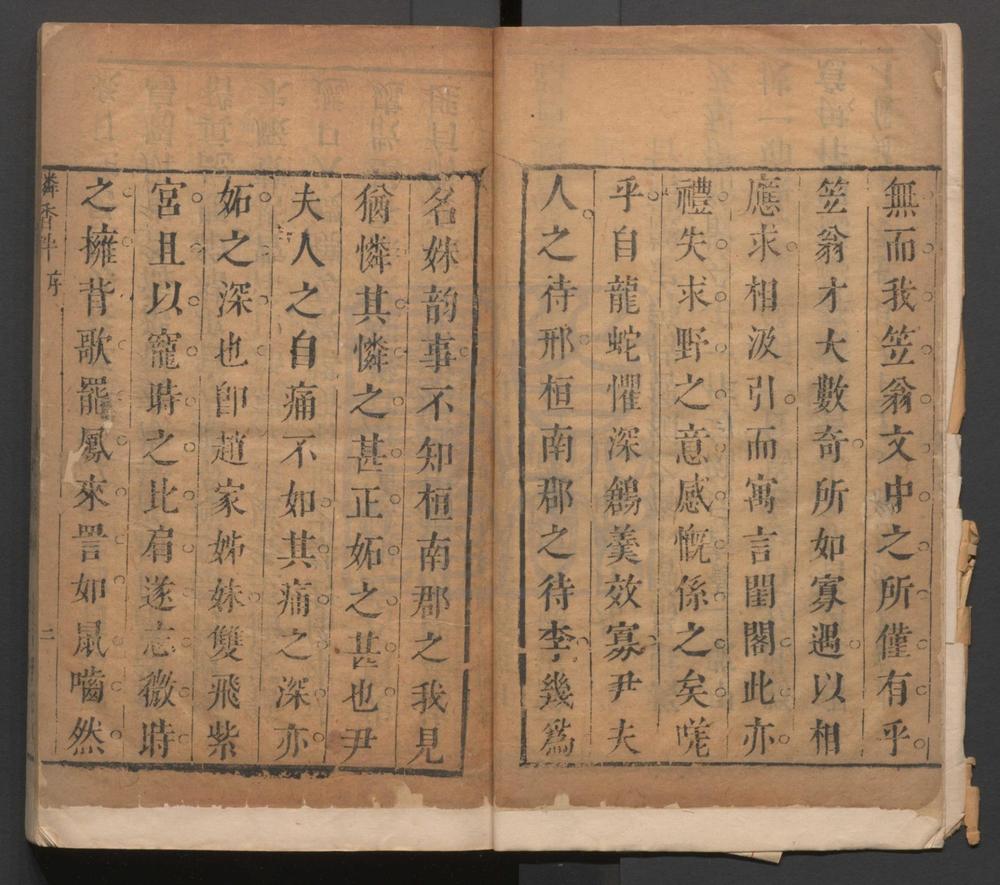 無而我笠翁文中之所僅有乎
笠翁才大數奇所如寡遇以相
應求相汲引而寓言閨閤此亦
禮失求野之意感慨係之矣嗟
乎自龍蛇懼深鶬羹效寡尹夫
人之待邢桓南郡之待李幾爲
名姝韵事不知桓南郡之我見
猶憐其憐之甚正妬之甚也尹
夫人之自痛不如其痛之深亦
妬之深也卽趙家姊妹雙飛紫
宮且以寵時之比肩遂忘微時
之擁背歌罷鳳來詈如鼠嚙然
憐香伴 序 二